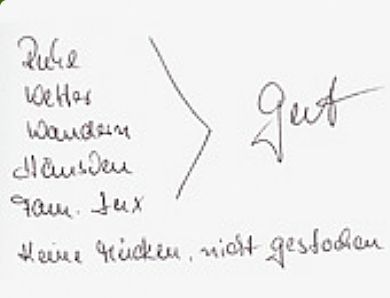 Ruhe
Wetter
Wandern
Häuschen
Fam. Jux
gut
Keine Mücken, nicht gestochen